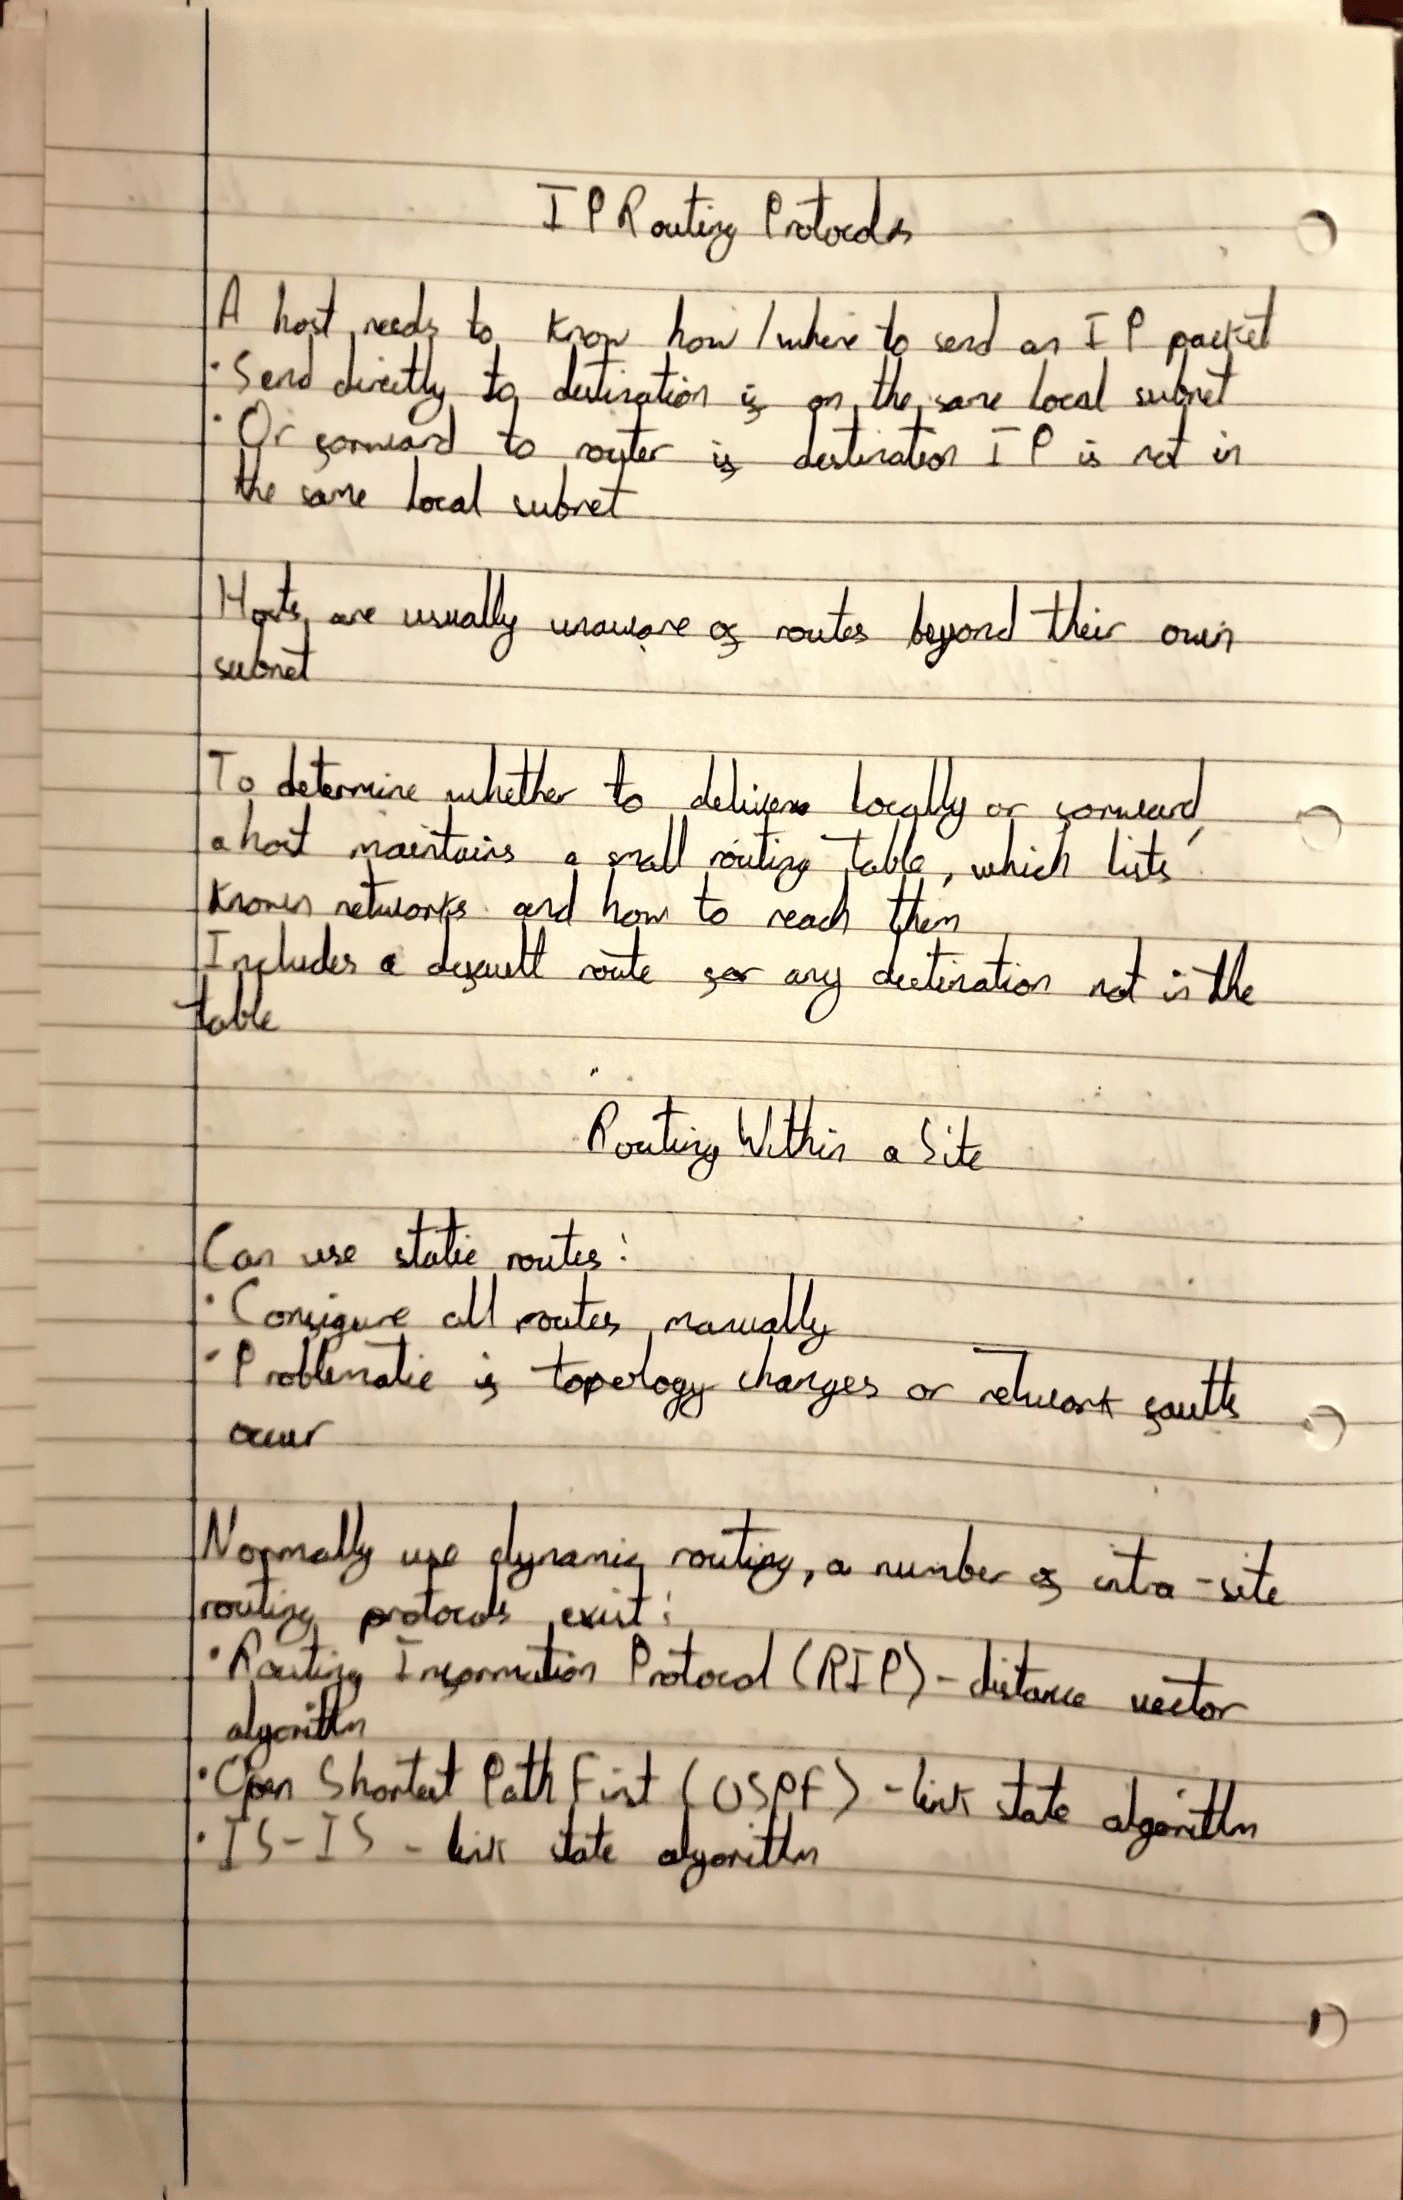 IP Routing Protocols
A host needs to know how/where to send an IP packet
· Send directly to destination if on the same local subnet
· Or forward to router if destination IP is not in
the same local subnet
Hosts are usually unaware of routes beyond their own
subnet
To determine whether to deliver locally or forward,
a host maintains a small routing table, which lists
known networks and how to reach them
Includes a default route for any destination not in the
table
Routing Within a Site
Can use static routes:
· Configure all routes manually
· Problematic if topology changes or network faults
occur
Normally use dynamic routing, a number of intra-site
routing protocols exist:
· Routing Information Protocol (RIP) - distance vector
algorithm
· Open Shortest Path First (OSPF) - link state algorithm
· IS-IS - link state algorithm